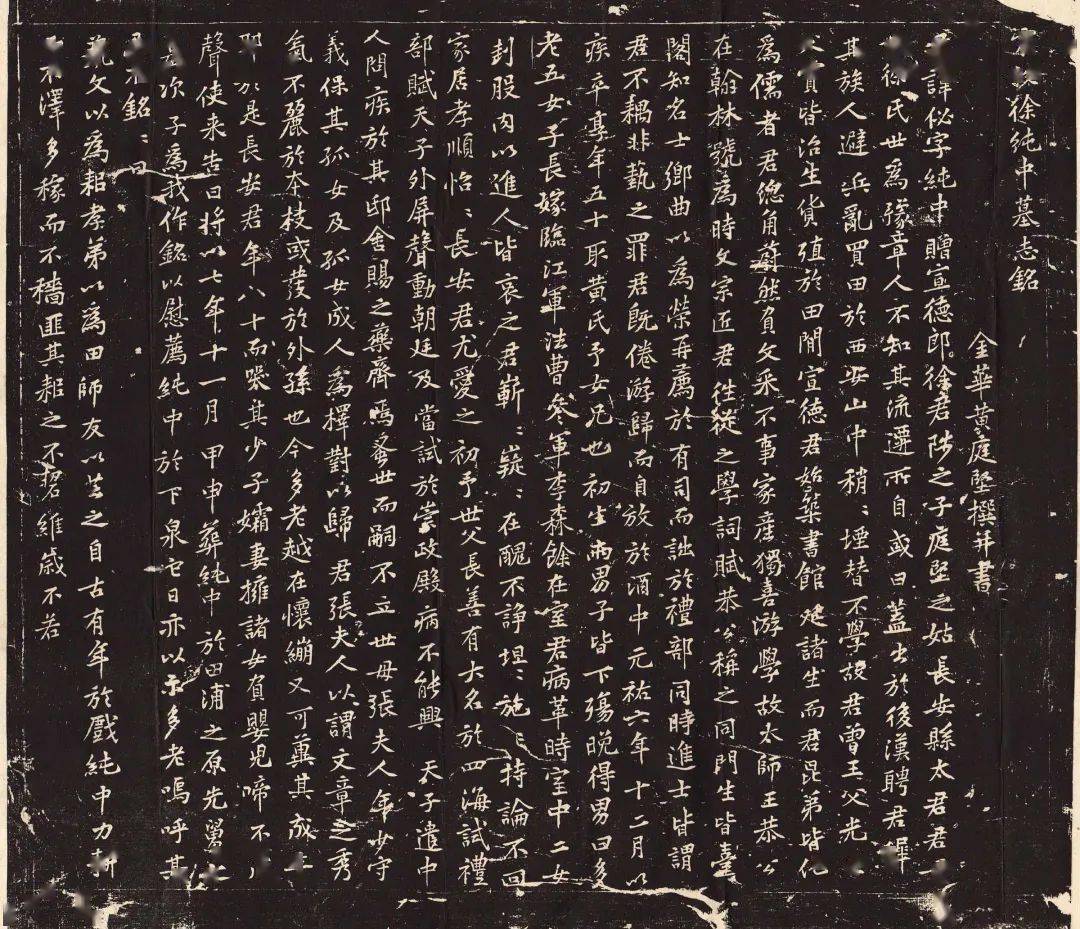 徐純中墓志銘
金華黄庭堅撰并書
諱佖字純中贈宣德郎徐君陟之子庭堅之姑長安縣太君君二
徐氏世為豫章人不知其流遷所自或曰蓋出於後漢聘君稺
其族人避兵亂買田於西安山中稍〻堙替不學故君曾王父光
父賞皆治生貨殖於田閒宣德君始築書館延諸生而君昆弟皆化
為儒者君總角蔚然負文采不事家産獨喜游學故太師王恭公
在翰林號為時文宗匠君往從之學詞賦恭公稱之同門生皆臺
閣知名士鄉曲以為榮再薦於有司而詘於禮部同時進士皆謂
君不耦非藝之罪君既倦游歸而自放於酒中元祐六年十二月以
疾卒享年五十娶黄氏予女兄也初生兩男子皆下殤晚得男曰多
老五女子長嫁臨江軍法曹參軍李森餘在室君病革時室中二女
刲股肉以進人皆哀之君嶄〻嶷〻在醜不諍坦〻施〻持論不回
家居孝順怡〻長安君尤愛之初予世父長善有大名於四海試禮
部賦天子外屏聲動朝廷及當試於崇政殿病不能興天子遣中
人問疾於其邸舍賜之藥齊焉蚤世而嗣不立世母張夫人年少守
義保其孤女及孤女成人為擇對以歸君張夫人以謂文章之秀
氣不麗於本枝或發於外孫也今多老越在懷繃又可冀其成立
耶於是長安君年八十而哭其少子孀妻擁諸女負嬰兒啼不
聲使来告曰将以七年十一月甲申葬純中於田浦之原先塋
次子為我作銘以慰薦純中於下泉它日亦以示多老嗚呼其
銘〻曰
執文以為耜孝弟以為田師友以芸之自古有年於戲純中力耕
不澤多稼而不穡匪其耜之不碧維歲不若